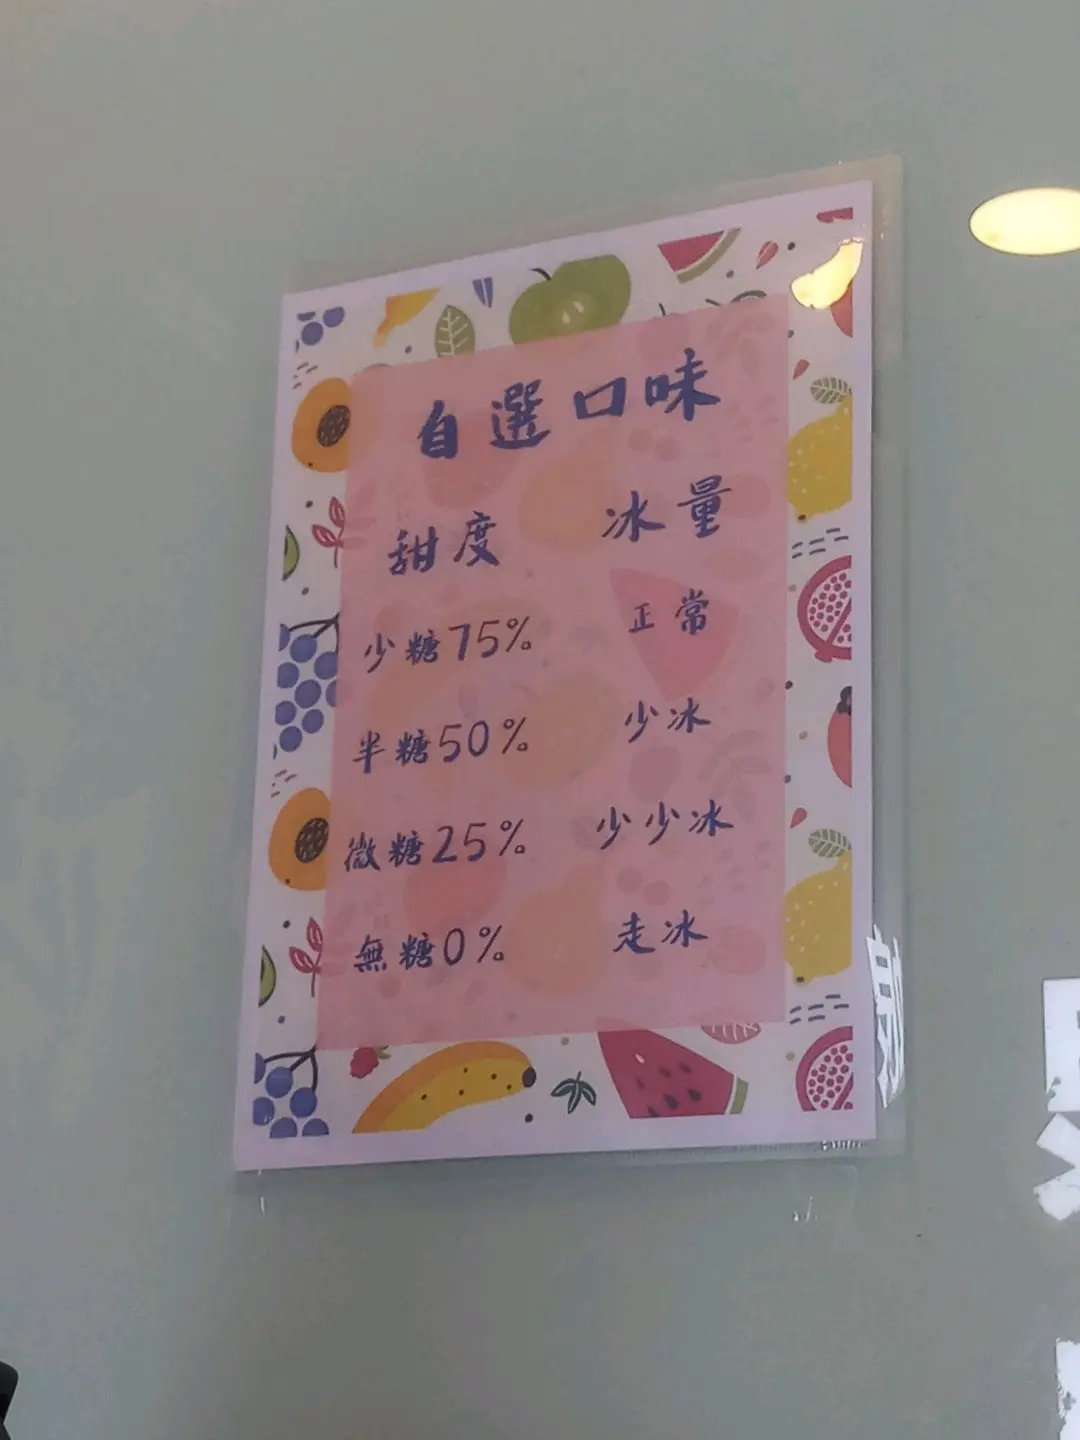 自選口味
甜度 冰量
少糖75% 正常
半糖50% 少冰
微糖25% 少少冰
無糖0% 走冰